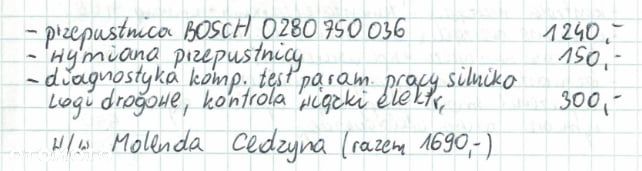 - przepustnica BOSCH 0280 750 036 1240,-
- wymiana przepustnicy 150,-
- diagnostyka komp. test param. pracy silnika
Logi drogowe, kontrola wiązki elektr, 300,-
w/w Molenda Cedzyna (razem 1690,-)